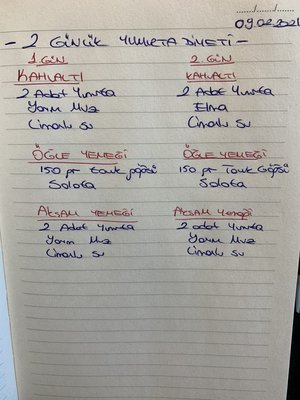 ...../...../.....
09.02.2021
- 2 GÜNLÜK YUMURTA DİYETİ -
1.GÜN 2. GÜN
KAHVALTI KAHVALTI
2 Adet Yumurta 2 Adet Yumurta
Yarım Muz Elma
Limonlu Su Limonlu Su
ÖĞLE YEMEĞİ ÖĞLE YEMEĞİ
150 gr tavuk göğsü 150 gr Tavuk Göğsü
Salata Salata
AKŞAM YEMEĞİ AKŞAM Yemeği
2 Adet Yumurta 2 adet Yumurta
Yarım Muz Yarım Muz
Limonlu Su Limonlu Su